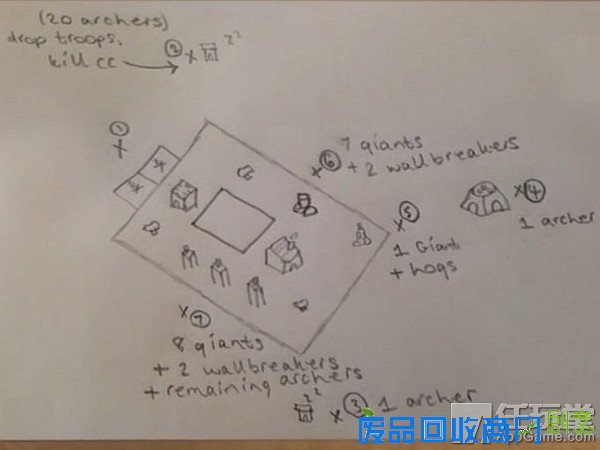 (20 archers)
drop troops,
kill cc
② x
z z
① x
x ⑥ 7 giants
+ 2 wallbreakers
x ④
1 archer
x ⑤
1 Giant
+ hogs
x ⑦
8 giants
+ 2 wallbreakers
+ remaining archers
z z
x ③ 1 archer
任玩堂
废品回收商门